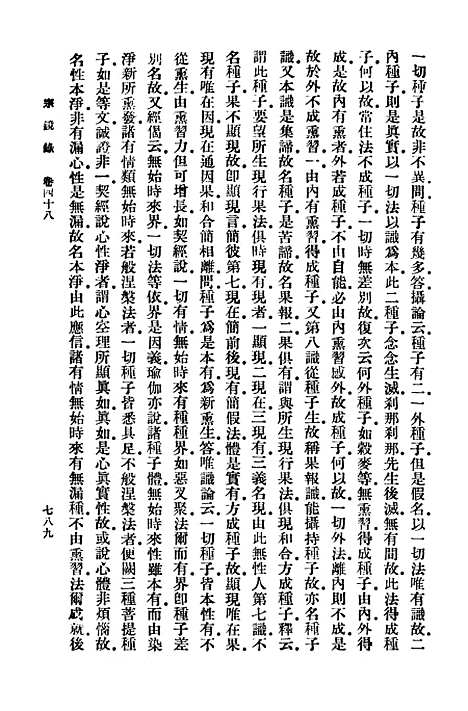 一切種子是故非不異問種子有幾多答攝論云種子有二一外種子但是假名以一切法唯有識故二
內種子則是眞實以一切法以識爲本此二種子念念生滅剎那剎那先生後滅無有間故此法得成種
子何以故常住法不成種子一切時無差別故復次云何外種子如穀麥等無熏習得成種子由內外得
成是故內有熏者外若成種子不由自能必由內熏習感外故成種子何以故一切外法離內則不成是
故於外不成熏習一由內有熏習得成種子又第八識從種子生故稱果報識能攝持種子故亦名種子
識又本識是集諦故名種子是苦諦故名果報二果俱有謂與所生現行果法俱現和合方成種子釋云
謂此種子要望所生現行果法俱時現有現者一顯現二現在三現有三義名現由此無性人第七識不
名種子果不顯現故卽顯現言簡彼第七現在簡前後現有簡假法體是實有方成種子故顯現唯在果
現有唯在因現在通因果和合簡相離問種子爲是本有爲新熏生答唯識論云一切種子皆本性有不
從熏生由熏習力但可增長如契經說一切有情無始時來有種種界如惡叉聚法爾而有界卽種子差
別名故又經偈云無始時來界一切法等依界是因義瑜伽亦說諸種子體無始時來性雖本有而由染
淨新所熏發諸有情類無始時來若般涅槃法者一切種子皆悉具足不般涅槃法者便闕三種菩提種
子如是等文誠證非一契經說心性淨者謂心空理所顯眞如眞如是心眞實性故或說心體非煩惱故
名性本淨非有漏心性是無漏故名本淨由此應信諸有情無始時來有無漏種不由熏習法爾成就後
宗鏡錄 卷四十八
七八九